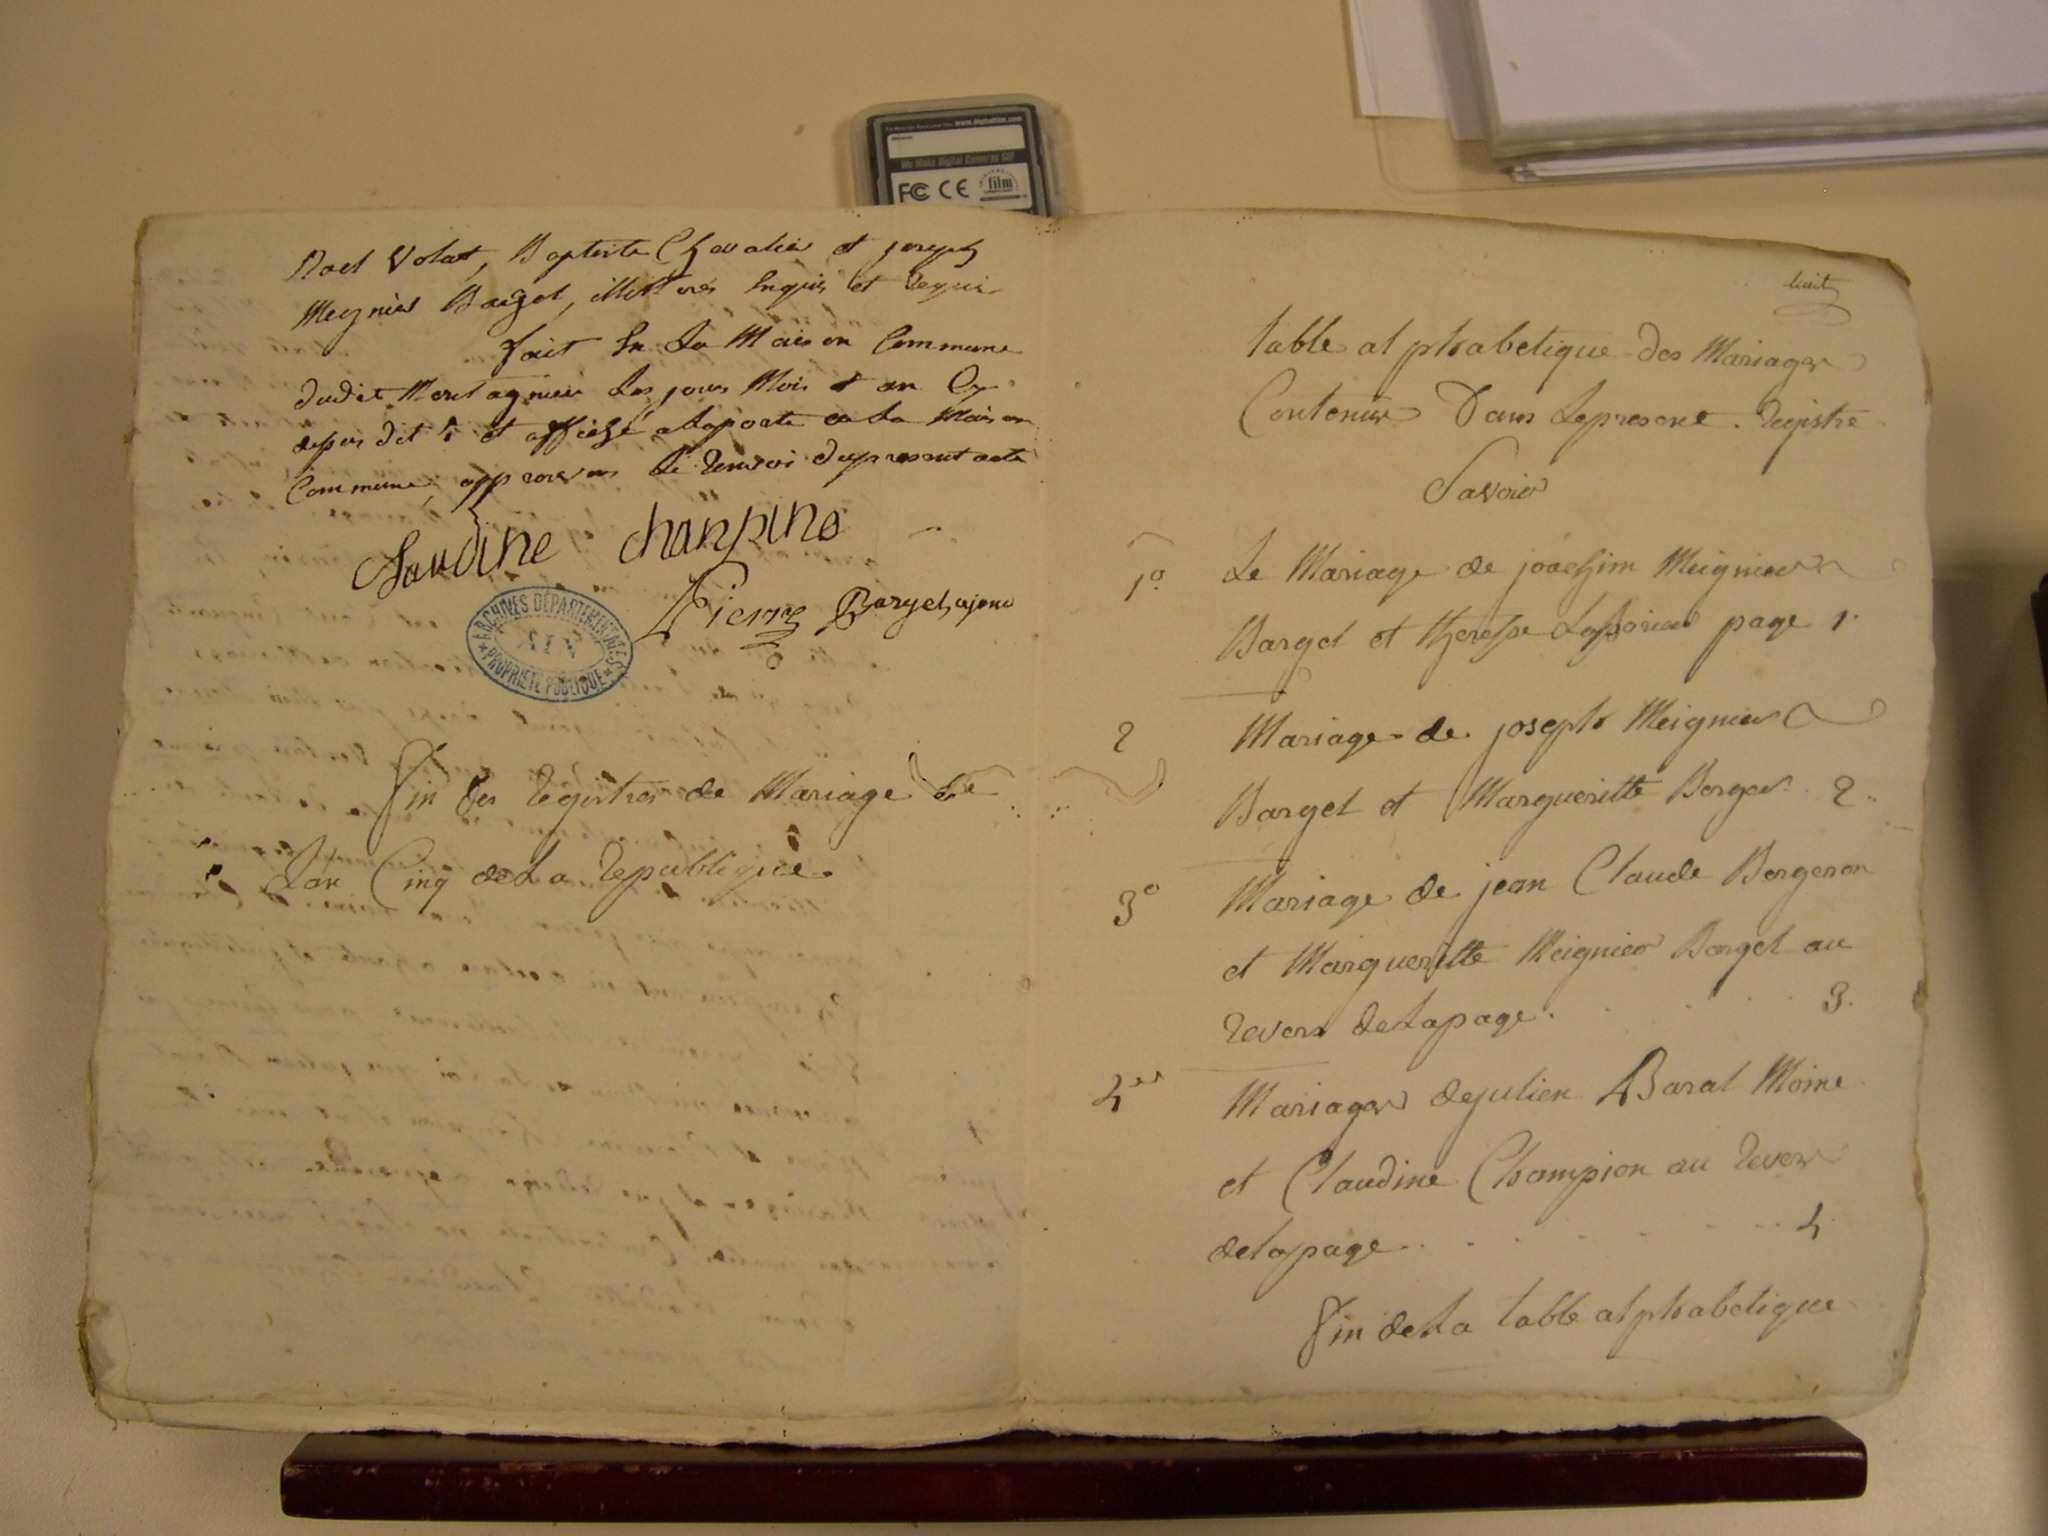 www.digitalfilm.com
We Make Digital Cameras GO!
FC CE film
Noel Volat, Baptiste Chevalier et joseph
Meynier Bargel, illittérés Enquis et Requis
fait En La Maison Commune
dudit Montagnieu Les jours Mois et an Cy
depus dit et affiché alaporte de La Maison
Commune, approuvons Le Renvoi dupresent acte
Claudine chanpino
Pierre Bargel ajoint
ARCHIVES DÉPARTEMENTALES
AIN
PROPRIÉTÉ PUBLIQUE
Fin des Registres de Mariage de
Lan Cinq de La Republique.
huit
table alphabetique des Mariages
Contenus Dans Lepresent Registre
Savoir
1º Le Mariage de joachim Meignier
Bargel et therese page 1.
2 Mariage de joseph Meignier
Bargel et Margueritte Berger 2.
3º Mariage de jean Claude Bergeron
et Margueritte Meignier Bargel au
Revers deLapage. 3.
4 Mariages dejulien Baral Moine
et Claudine Champion au Revers
delapage 4
Fin deLa table alphabetique